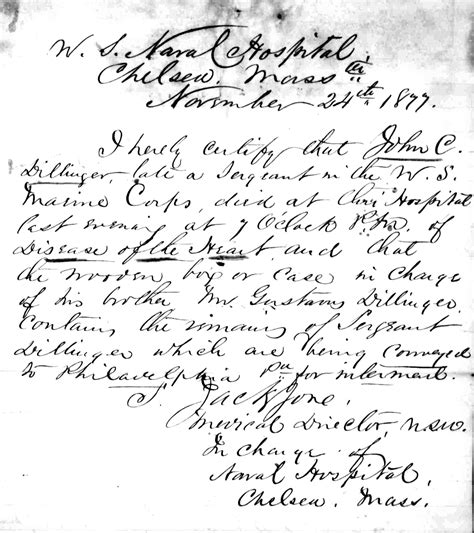 U. S. Naval Hospital,
Chelsea, Mass
November 24th 1877.
I herely certify that John C.
Dillinger, late a Sergeant in the U. S.
Marine Corps, died at this Hospital
last evening at 7 O'Clock P.M. of
Disease of the Heart and that
the wooden box or case in charge
of his brother Mr. Gustavus Dillinger
contains the remains of Sergeant
Dillinger which are being conveyed
to Philadelphia Pa for interment.
S. Jack Jone,
Medical Director, U.S.N.
In charge of
Naval Hospital,
Chelsea, Mass.